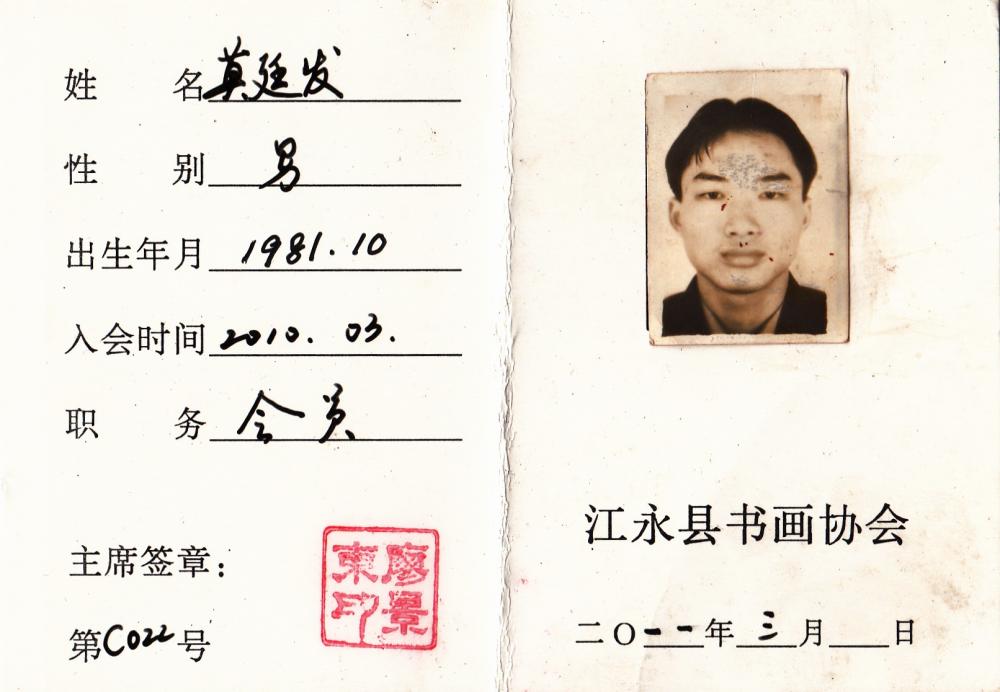 姓 名 莫廷发
性 别 男
出生年月 1981.10
入会时间 2010. 03.
职 务 会员
主席签章:
廖景東印
第C022号
江永县书画协会
二〇一一年三月 日